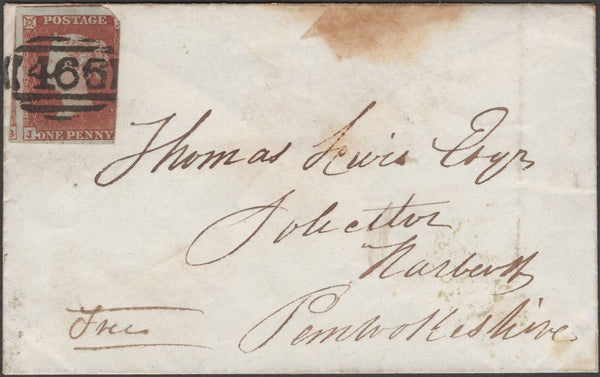 POSTAGE
466
J
ONE PENNY
Thomas Lewis Esqr
Solicitor
Narberth
Pembrokeshire